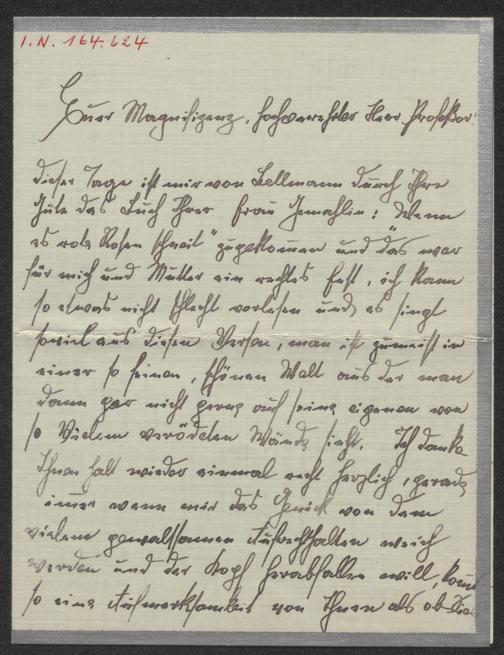 I.N. 164.624
Euer Magnifizenz, hochverehrter Herr Professor!
dieser Tage ist mir von Bellmann durch Ihre
Güte das Buch Ihrer Frau Gemahlin: "Wenn
es rote Rosen schneit" zugekommen und das war
für mich und Mutter ein rechtes Fest, ich kann
so etwas nicht schlecht vorlesen und es singt
soviel aus diesen Versen, man ist zumeist in
einer so feinen, schönen Welt aus der man
dann gar nicht gerne auf seine eigenen von
so Vielem verödeten Wände sieht. Ich danke
Ihnen halt wieder einmal recht herzlich, gerade
immer wenn mir das Genick von dem
vielem gewaltsamen Aufrechthalten weich
werden und der Kopf herabfallen will, kommt
so eine Aufmerksamkeit von Ihnen als ob Sie